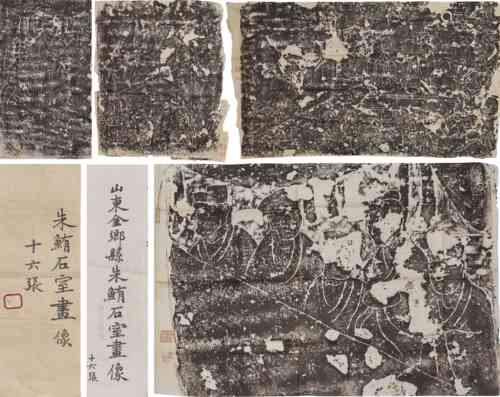 朱鮪石室畫像
十六張
山東金鄉縣朱鮪石室畫像
十六張